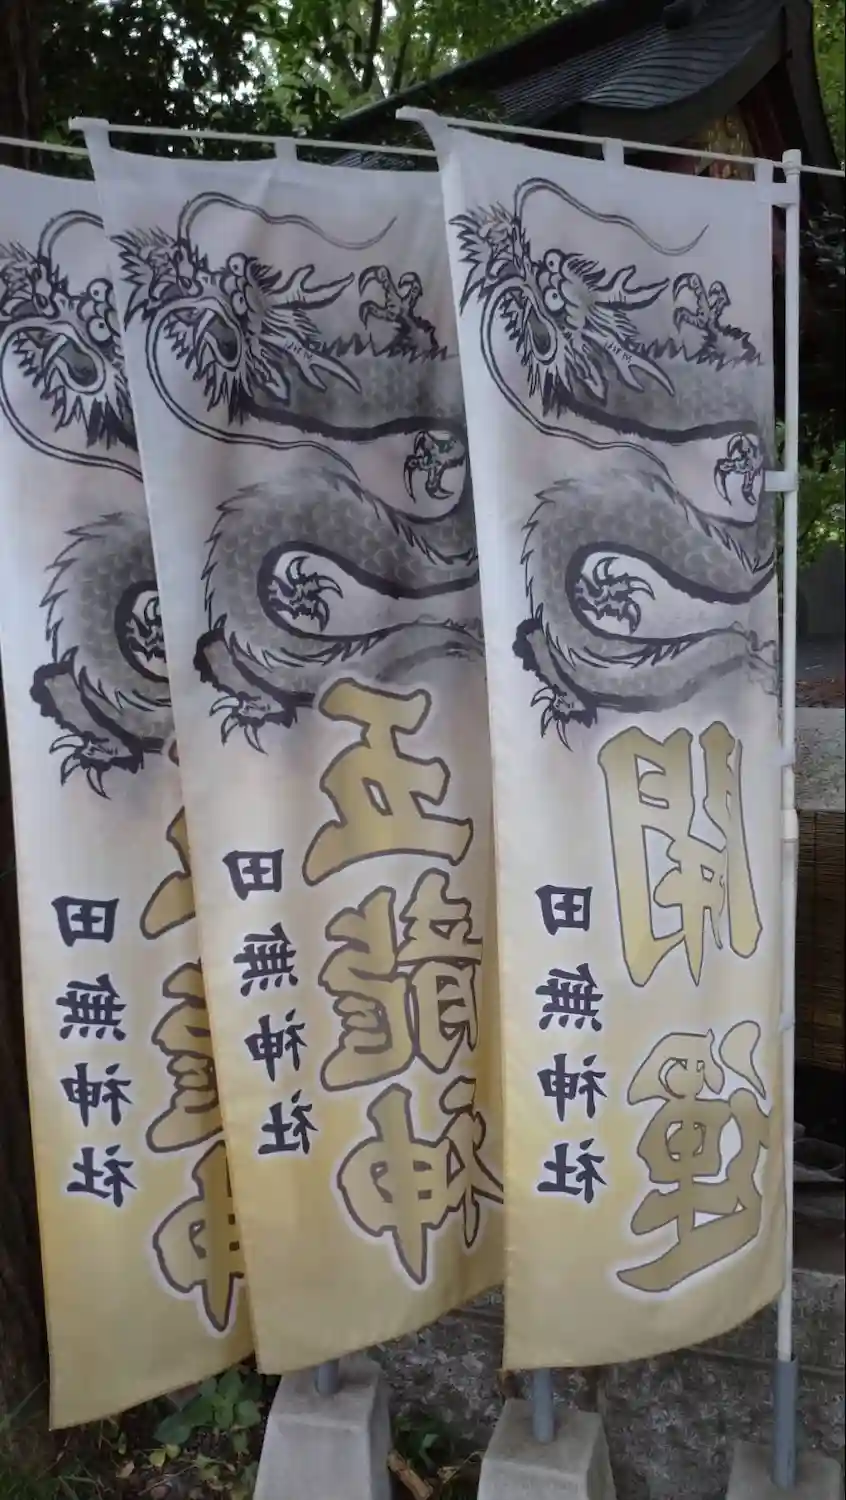 開運
田無神社
五龍神
田無神社
五龍神
田無神社